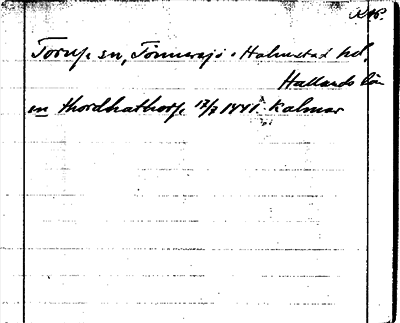 Torup sn, Tönnersjö o Halmstad hd,
Hallands län
in thordhathorp 17/7 1441 Kalmar